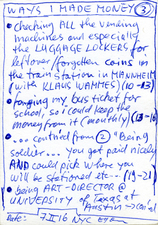 WAYS I MADE MONEY 3
• CHECKING ALL the vending
machines and especially
the LUGGAGE LOCKERS for
leftover/forgotten coins in
the train station in MANNHEIM
(with KLAUS WAMMES) (10-13)
• forging my bus ticket for
school, so i could keep the
money from it (monthly) (13-16)
• ... contnd from 2 Being
soldier... you got paid nicely
AND could pick where you
will be stationed etc... (19-21)
• being ART-DIRECTOR @
UNIVERSITY of Texas at
Austin → cont'd
Date: 7.II.16 NYC